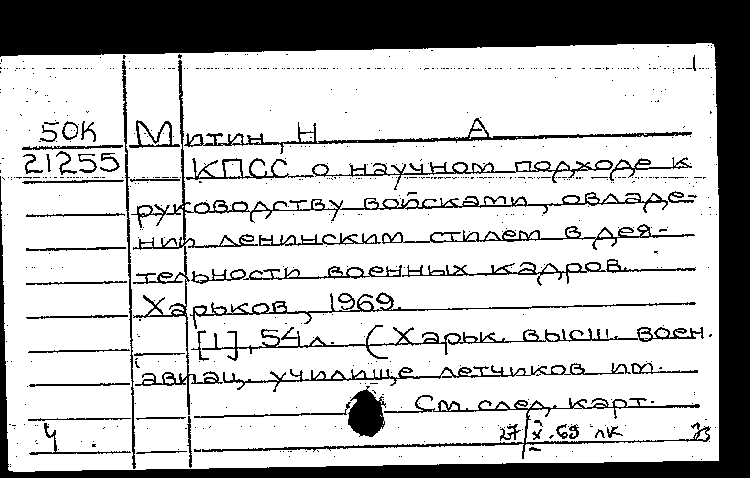 1
50К Митин, Н А
21255 КПСС о научном подходе к
руководству войсками, овладе-
нии ленинским стилем в дея-
тельности военных кадров.
Харьков, 1969.
[1], 54 л. (Харьк. высш. воен.
авиац. училище летчиков им.
См. след. карт.
Ч 27/X.69 лк